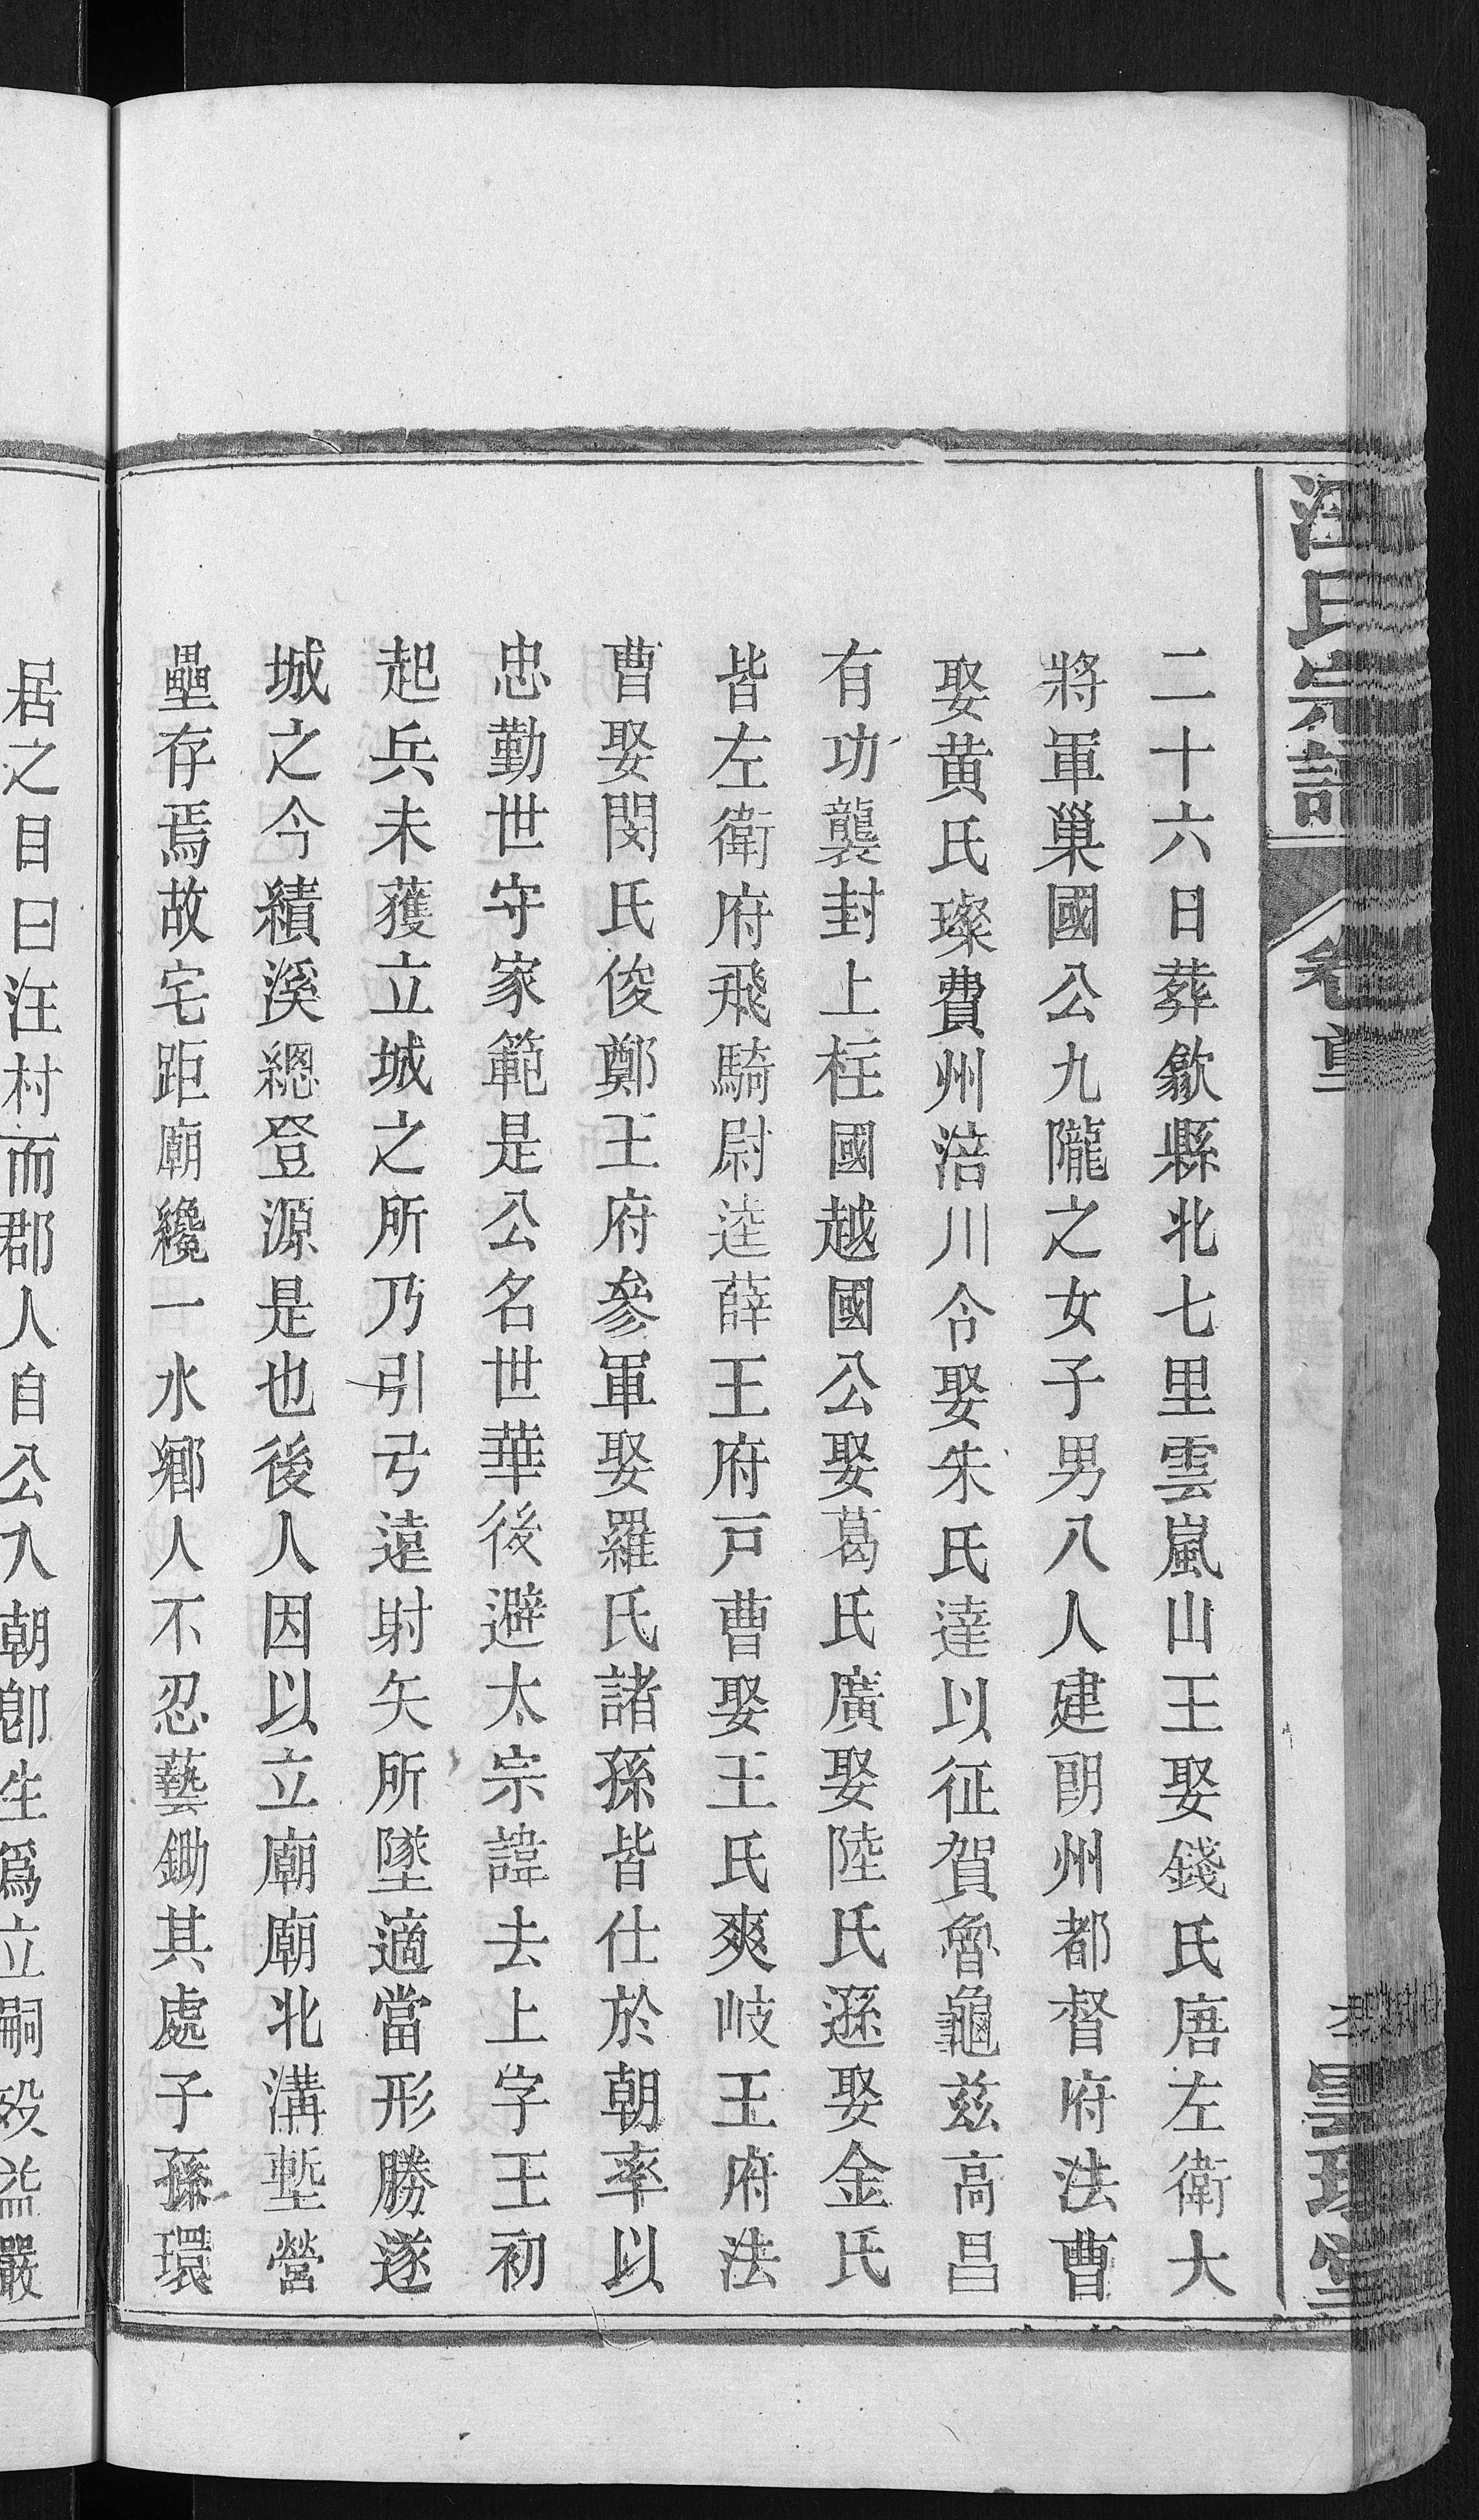 汪氏宗譜
二十六日葬歙縣北七里雲嵐山王娶錢氏唐左衛大
將軍巢國公九隴之女子男八人建朗州都督府法曹
娶黄氏璨費州涪川令娶朱氏達以征賀魯龜兹高昌
有功襲封上柱國越國公娶葛氏廣娶陸氏遜娶金氏
皆左衛府飛騎尉逵薛王府戸曹娶王氏爽岐王府法
曹娶閔氏俊鄭王府參軍娶羅氏諸孫皆仕於朝率以
忠勤世守家範是公名世華後避太宗諱去上字王初
起兵未獲立城之所乃引弓遠射矢所墜適當形勝遂
城之今績溪緫登源是也後人因以立廟廟北溝塹營
壘存焉故宅距廟纔一水鄉人不忍藝鋤其處子孫環
居之目曰汪村而郡人自公入朝卽生爲立嗣歿益嚴